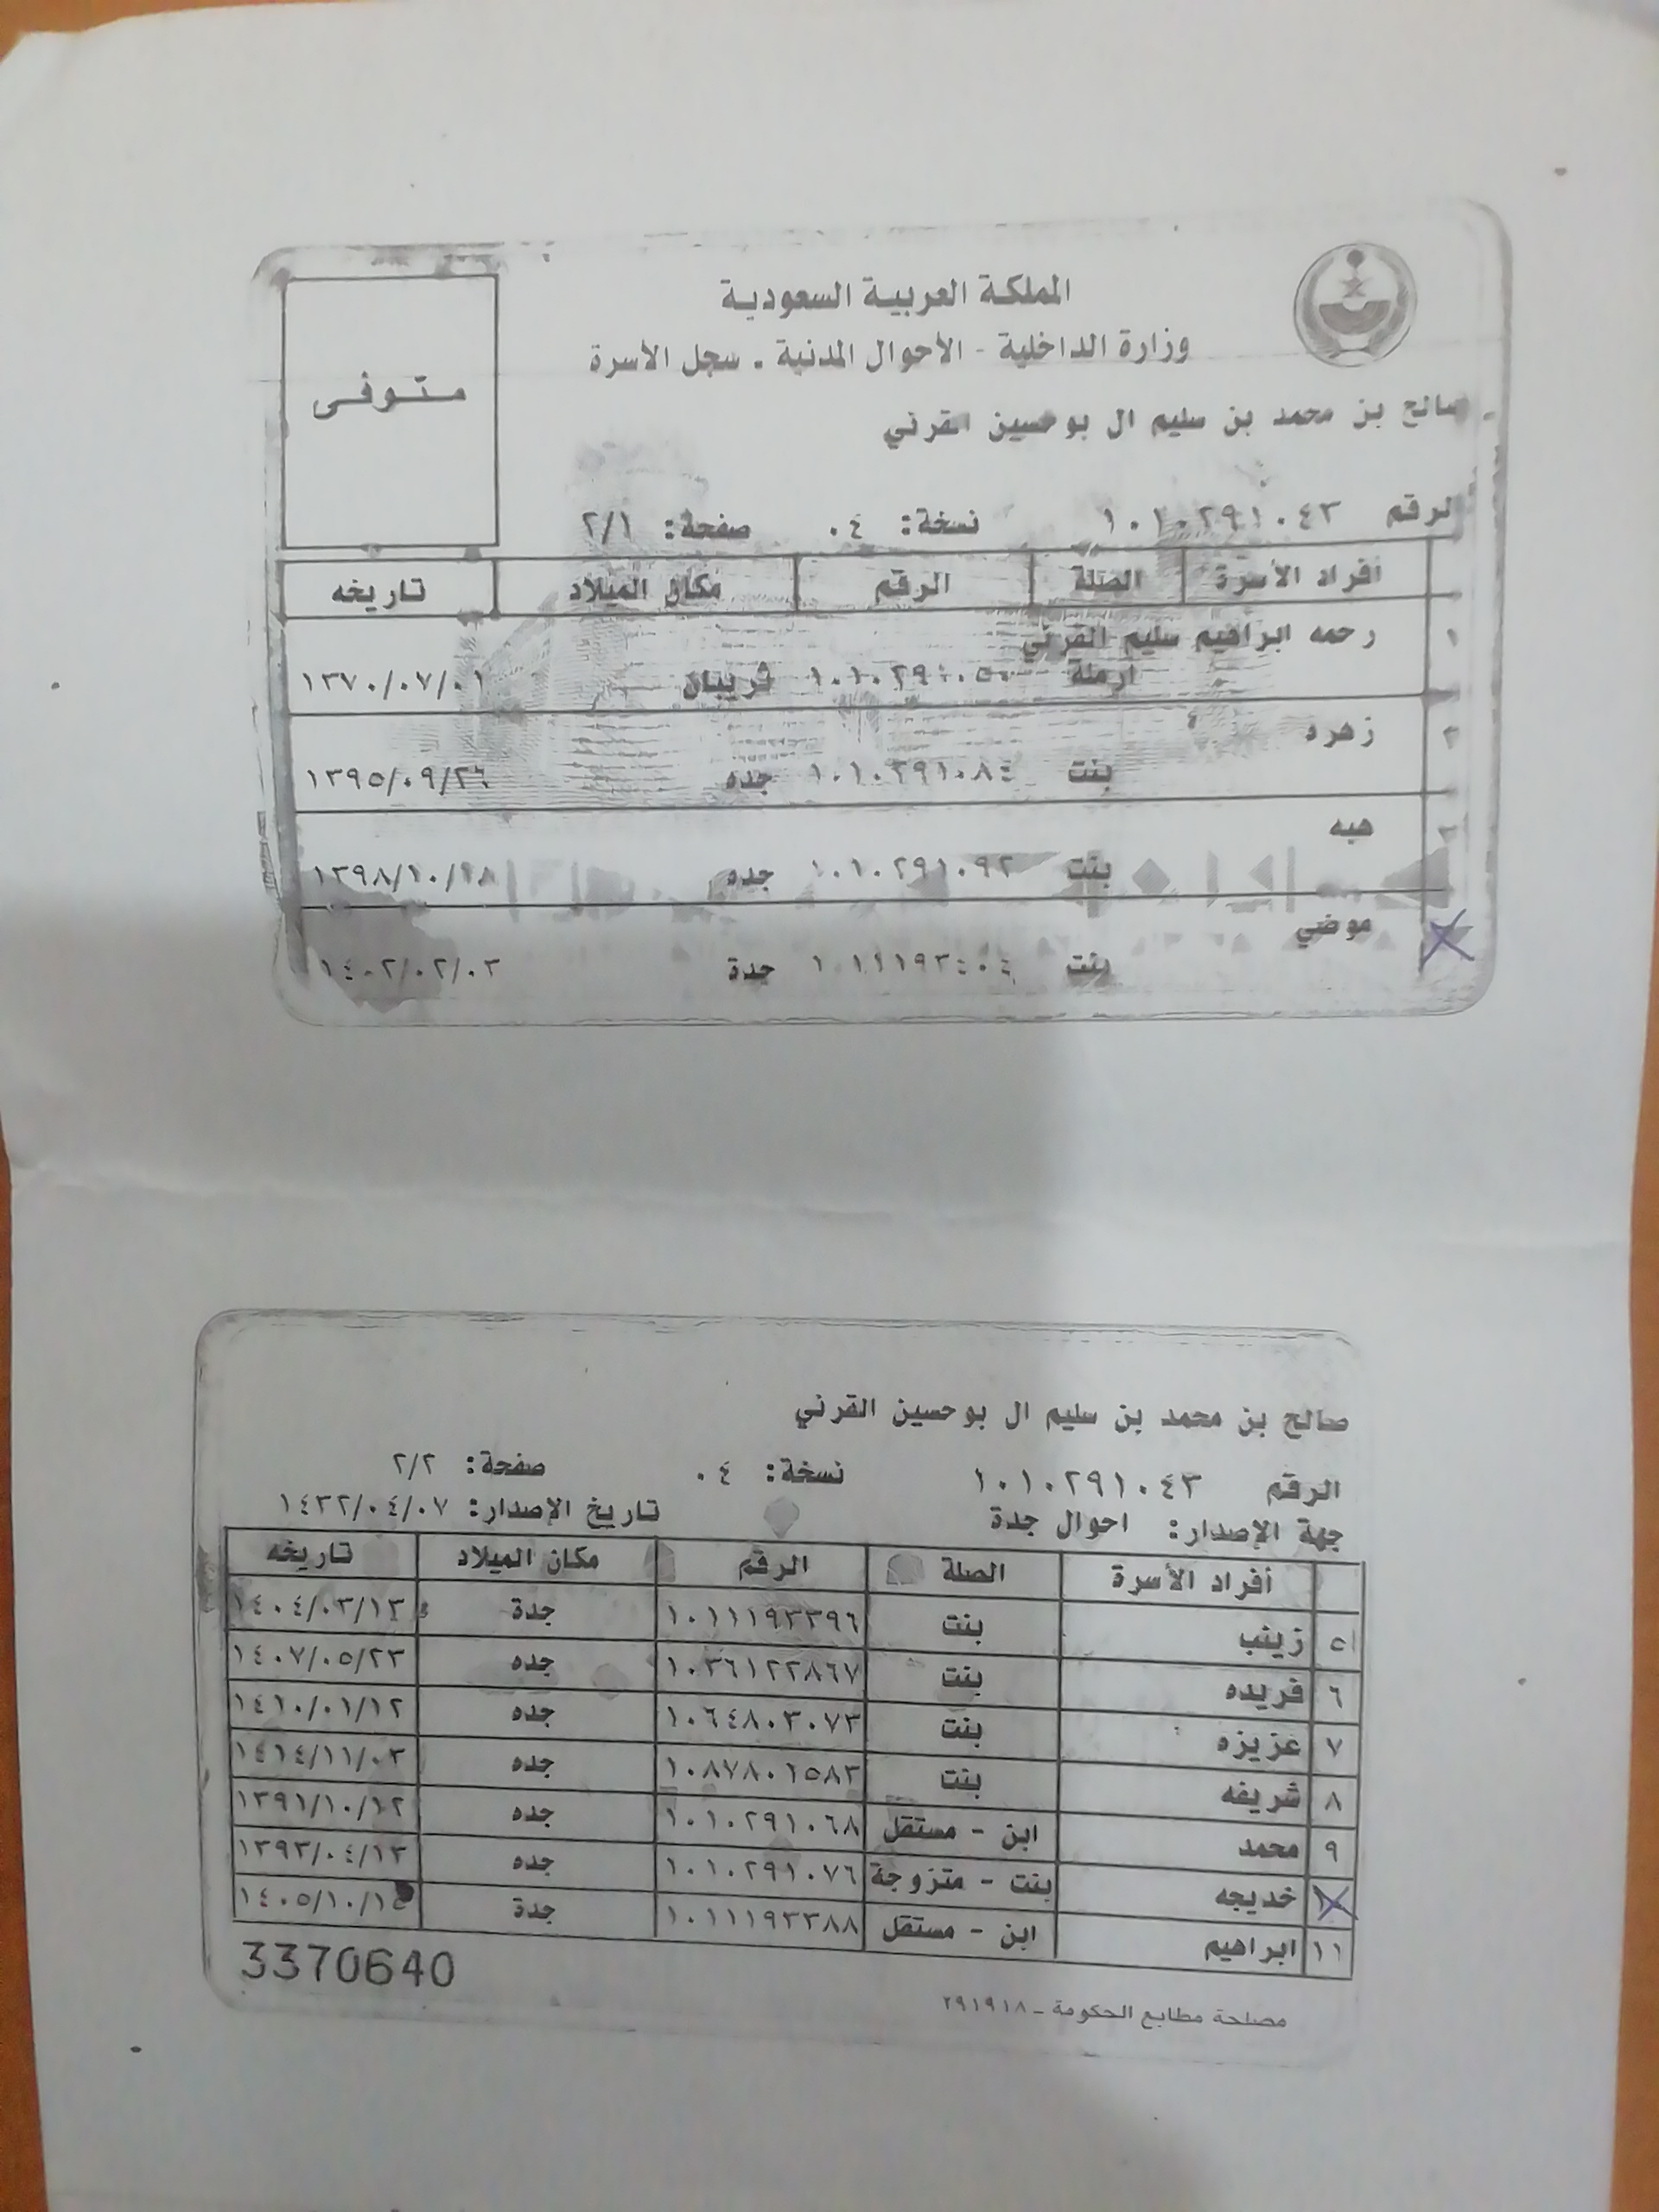 المملكة العربية السعودية
وزارة الداخلية - الأحوال المدنية - سجل الأسرة
متوفى
صالح بن محمد بن سليم ال بوحسين القرني
الرقم ١٠١٠٢٩١٠٤٣ نسخة: ٠٤ صفحة: ٢/١
أفراد الأسرة الصلة الرقم مكان الميلاد تاريخه
١ رحمه ابراهيم سليم القرني
ارملة ١٠١٠٢٩١٠٥٠ قريبان ١٣٧٠/٠٧/٠١
٢ زهره
بنت ١٠١٠٢٩١٠٨٤ جده
٣ هبه
بنت ١٠١٠٢٩١٠٩٢ جده ١٣٩٨/١٠/١٨
موضي
بنت ١٠١١١٩٣٤٠٤ جدة ١٤٠٢/٠٢/٠٣
صالح بن محمد بن سليم ال بوحسين القرني
الرقم ١٠١٠٢٩١٠٤٣ نسخة: ٠٤ صفحة: ٢/٢
جهة الإصدار: احوال جدة تاريخ الإصدار: ١٤٣٢/٠٤/٠٧
أفراد الأسرة الصلة الرقم مكان الميلاد تاريخه
٥ زينب بنت ١٠١١١٩٣٣٩٦ جدة ١٤٠٤/٠٣/١٣
٦ فريده بنت ١٠٣٦١٢٢٨٦٧ جده ١٤٠٧/٠٥/٢٣
٧ عزيزه بنت ١٠٦٤٨٠٣٠٧٣ جده ١٤١٠/٠١/١٢
٨ شريفه بنت ١٠٨٧٨٠١٥٨٣ جده ١٤١٤/١١/٠٣
٩ محمد ابن - مستقل ١٠١٠٢٩١٠٦٨ جده ١٣٩١/١٠/١٢
خديجه بنت - متزوجة ١٠١٠٢٩١٠٧٦ جده ١٣٩٣/٠٤/١٣
١١ ابراهيم ابن - مستقل ١٠١١١٩٣٣٨٨ جدة
3370640
مصلحة مطابع الحكومة - ٢٩١٩١٨